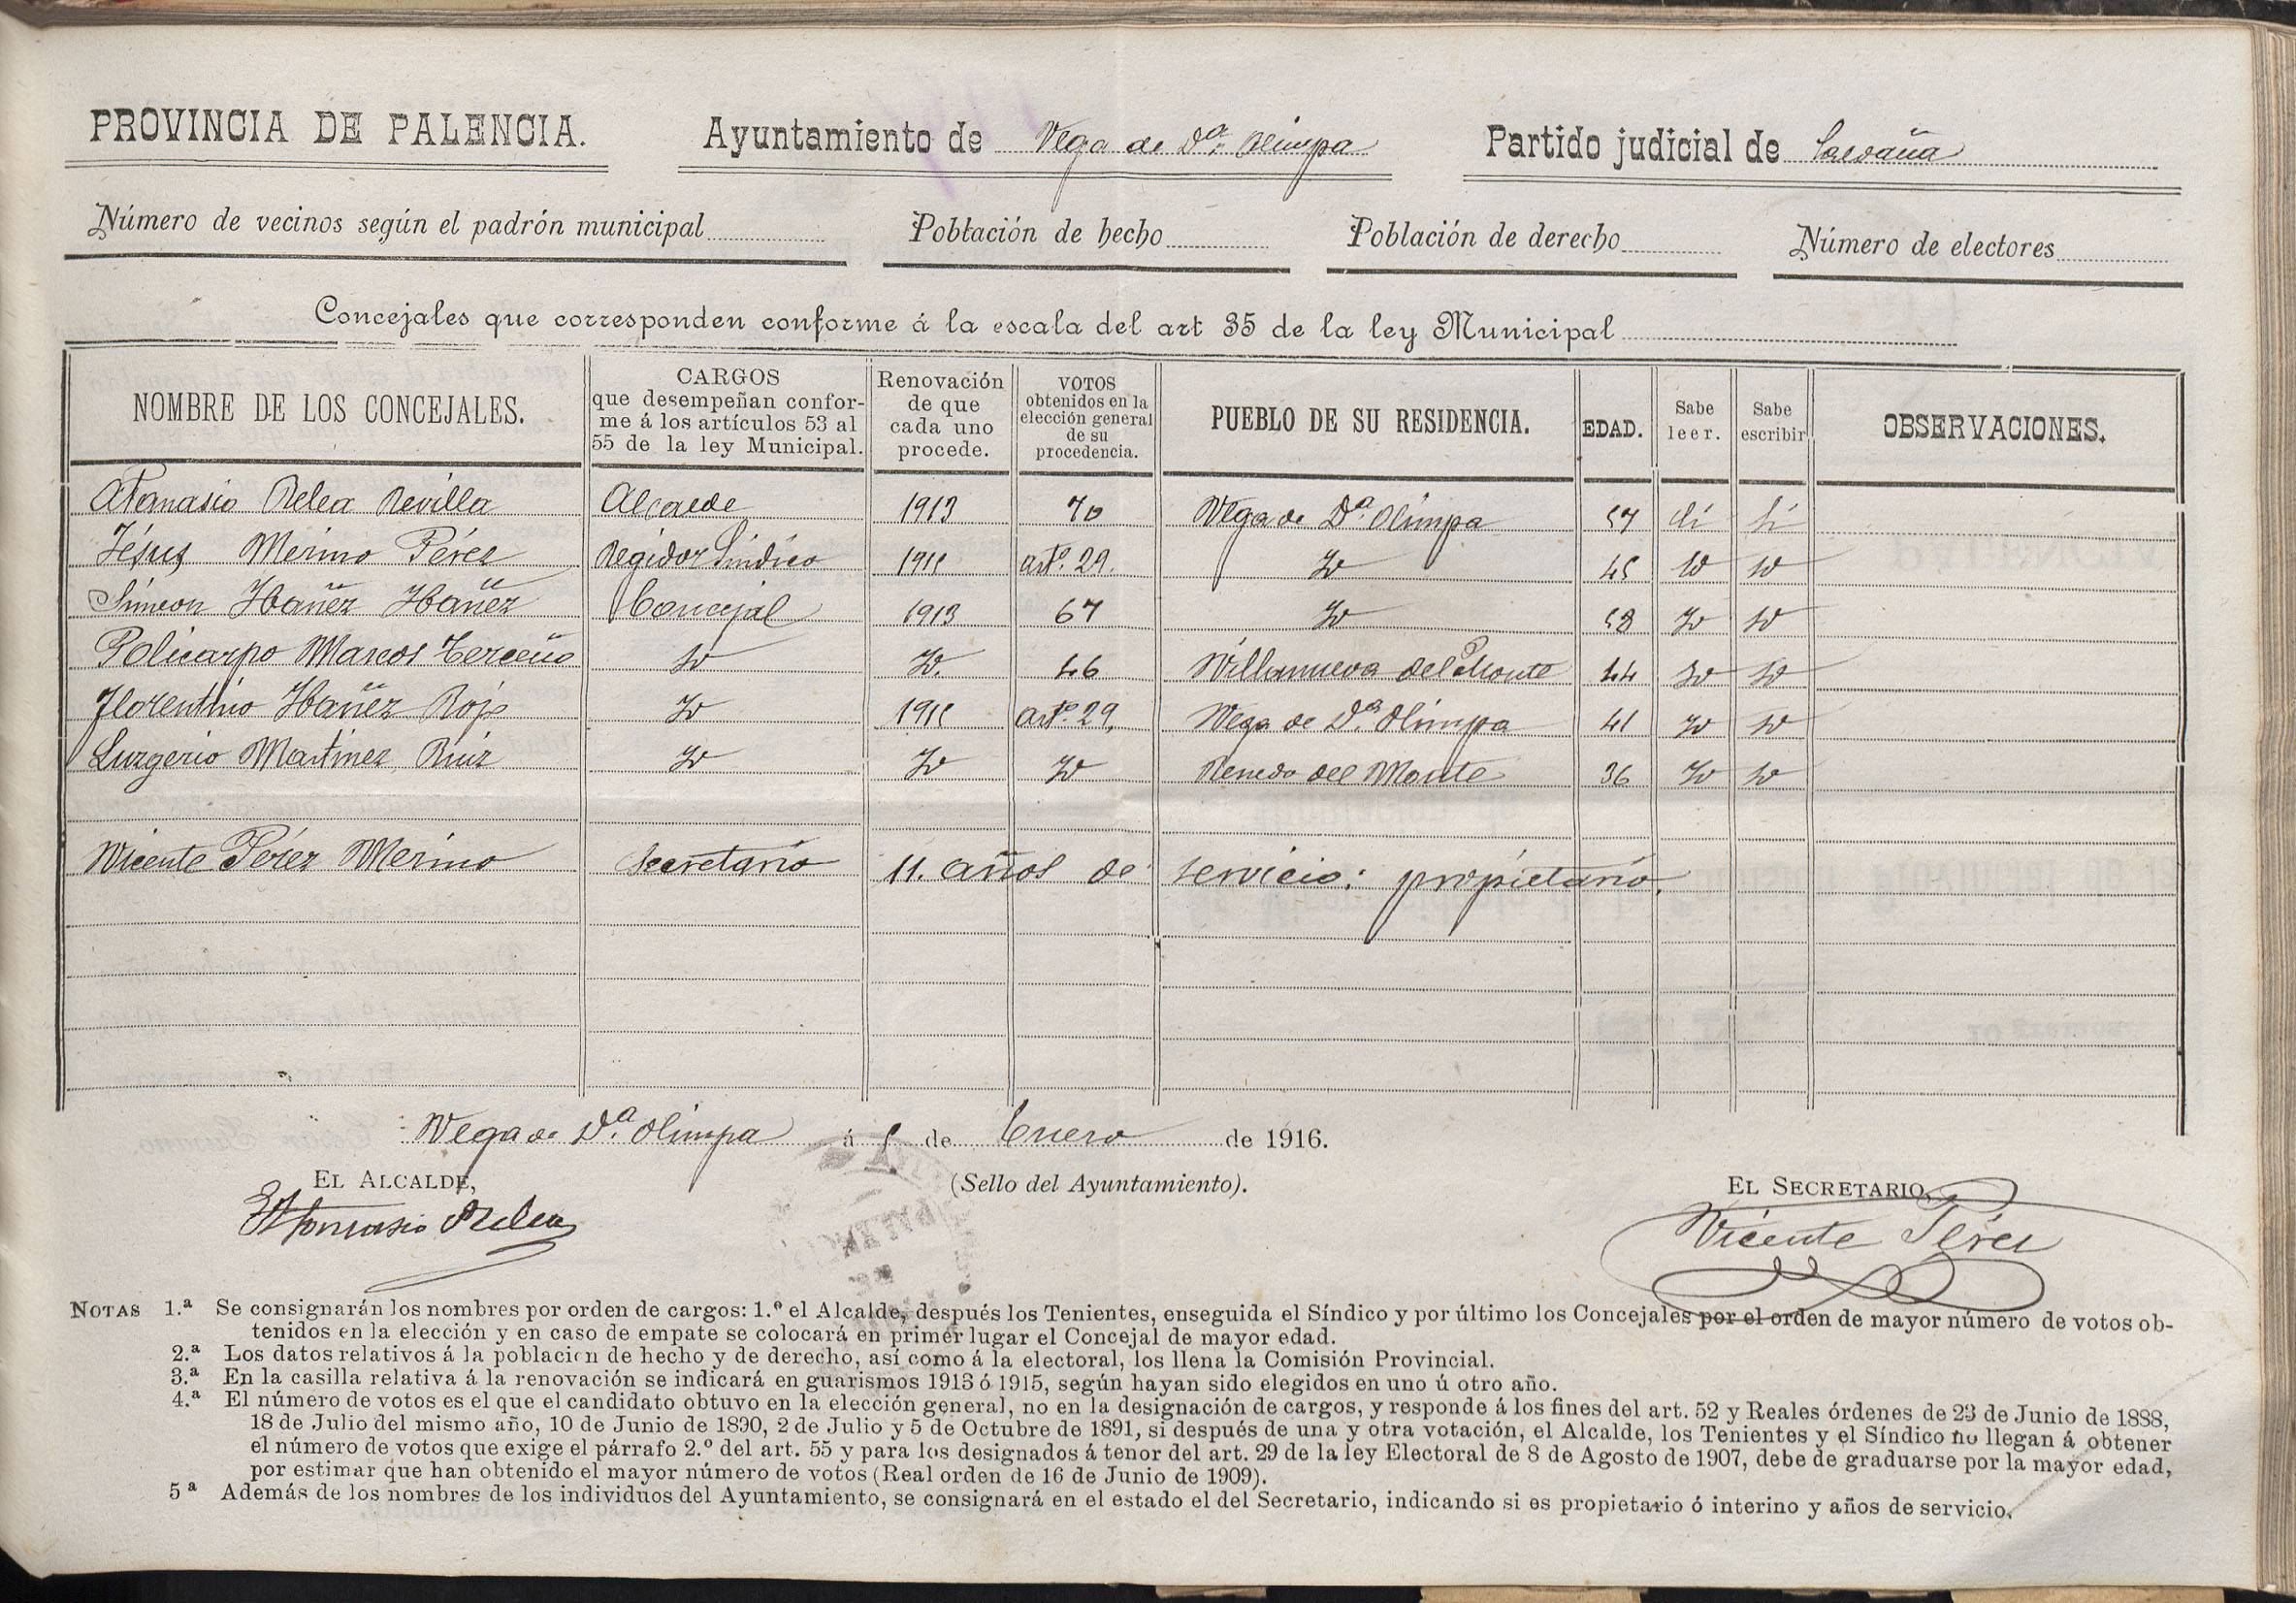 PROVINCIA DE PALENCIA. Ayuntamiento de Vega de D.ª Olimpa Partido judicial de Saldaña
Número de vecinos según el padrón municipal Población de hecho Población de derecho Número de electores
Concejales que corresponden conforme á la escala del art 35 de la ley Municipal
NOMBRE DE LOS CONCEJALES. CARGOS que desempeñan conforme á los artículos 53 al 55 de la ley Municipal. Renovación de que cada uno procede. VOTOS obtenidos en la elección general de su procedencia. PUEBLO DE SU RESIDENCIA. EDAD. Sabe leer. Sabe escribir OBSERVACIONES.
Atanasio Relea Revilla Alcalde 1913 70 Vega de D.ª Olimpa 57 Sí Sí
Jésus Merino Pérez Regidor Síndico 1915 art.º 29. Id 45 Id Id
Simeon Ibañez Ibañez Concejal 1913 67 Id 58 Id Id
Policarpo Marcos Terceño Id Id. 46 Villanueva del Monte 44 Id Id
Florentino Ibañez Rojo Id 1915 art.º 29. Vega de D.ª Olimpa 41 Id Id
Luzgerio Martinez Ruiz Id Id Id Renedo del Monte 36 Id Id
Vicente Pérez Merino Secretario 11. años de servicio: propietario.
Vega de D.ª Olimpa á 1. de Enero de 1916.
EL ALCALDE, (Sello del Ayuntamiento). EL SECRETARIO,
Atanasio Relea Vicente Pérez
NOTAS 1.ª Se consignarán los nombres por orden de cargos: 1.º el Alcalde, después los Tenientes, enseguida el Síndico y por último los Concejales por el orden de mayor número de votos ob-
tenidos en la elección y en caso de empate se colocará en primer lugar el Concejal de mayor edad.
2.ª Los datos relativos á la población de hecho y de derecho, así como á la electoral, los llena la Comisión Provincial.
3.ª En la casilla relativa á la renovación se indicará en guarismos 1913 ó 1915, según hayan sido elegidos en uno ú otro año.
4.ª El número de votos es el que el candidato obtuvo en la elección general, no en la designación de cargos, y responde á los fines del art. 52 y Reales órdenes de 23 de Junio de 1888,
18 de Julio del mismo año, 10 de Junio de 1890, 2 de Julio y 5 de Octubre de 1891, si después de una y otra votación, el Alcalde, los Tenientes y el Síndico no llegan á obtener
el número de votos que exige el párrafo 2.º del art. 55 y para los designados á tenor del art. 29 de la ley Electoral de 8 de Agosto de 1907, debe de graduarse por la mayor edad,
por estimar que han obtenido el mayor número de votos (Real orden de 16 de Junio de 1909).
5ª Además de los nombres de los individuos del Ayuntamiento, se consignará en el estado el del Secretario, indicando si es propietario ó interino y años de servicio.